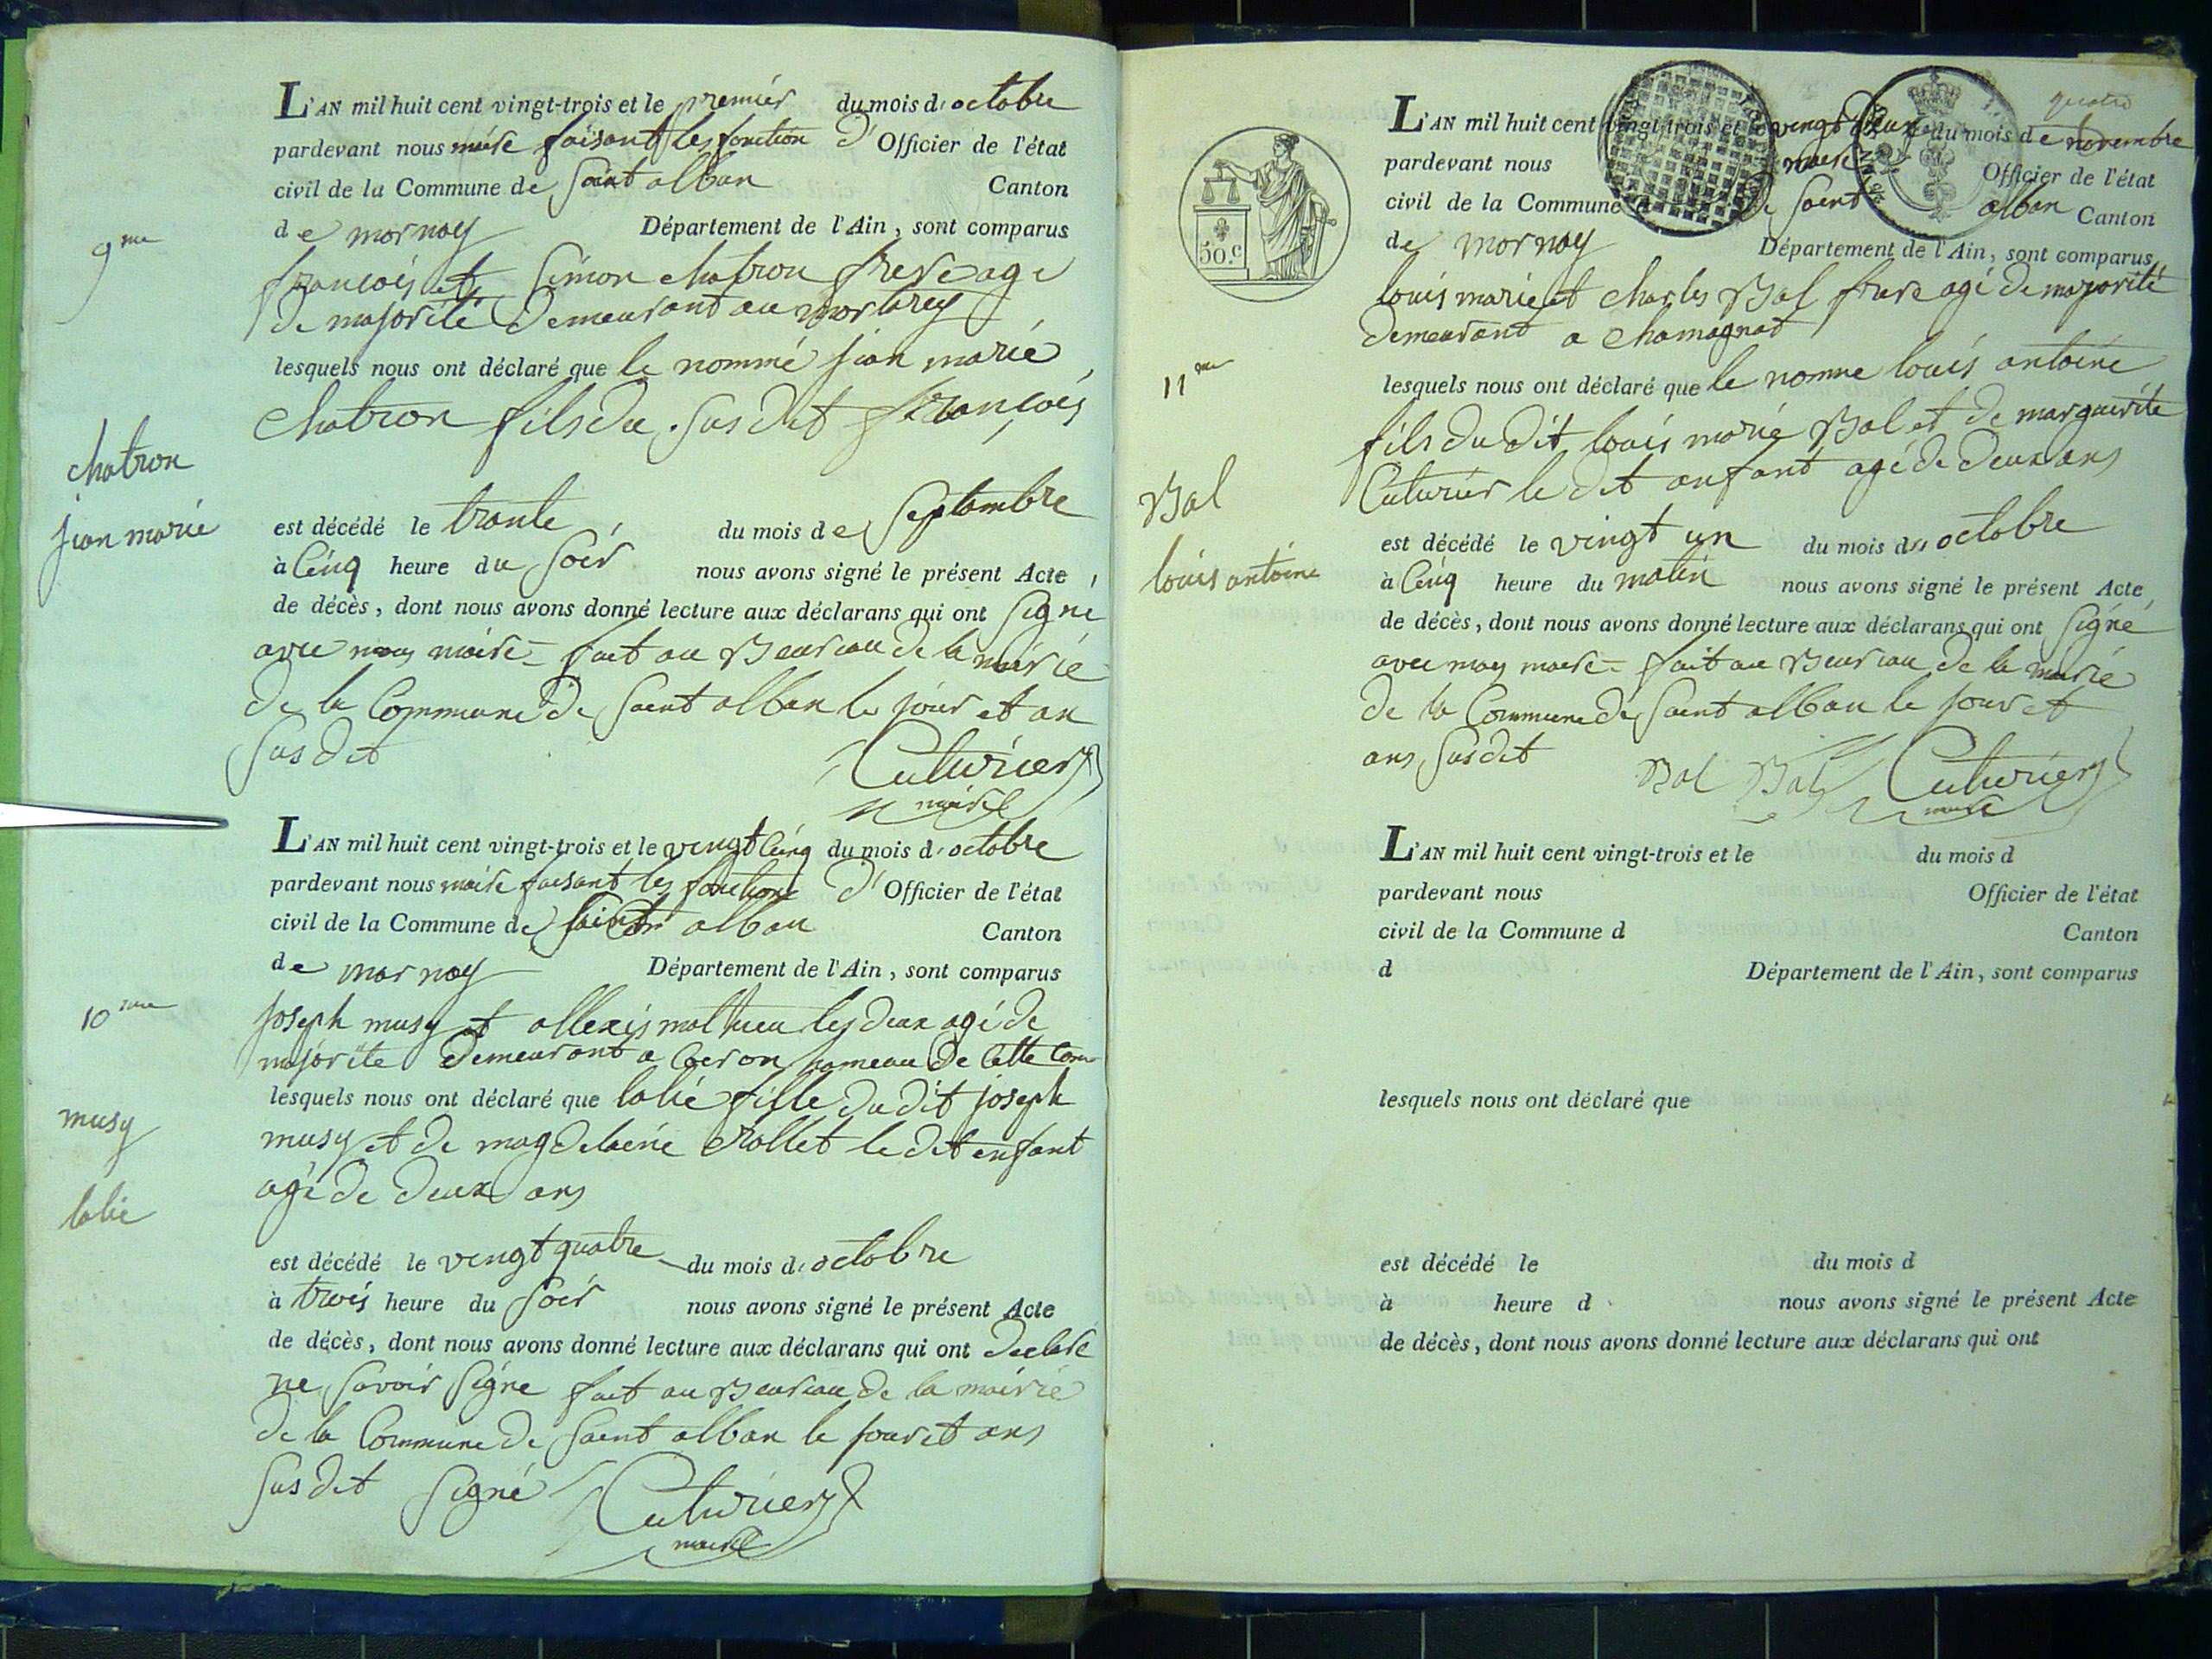 9me
chatron
jean marie
L'AN mil huit cent vingt-trois et le premier du mois d'octobre
pardevant nous maire faisant les fonction D' Officier de l'état
civil de la Commune de Saint alban Canton
de mornay Département de l'Ain, sont comparus
françois et Simon chatron frere agé
de majorité Demeurant au
lesquels nous ont déclaré que le nommé jean marie
chatron fils du susdit françois
est décédé le trante du mois de Septambre
à Cinq heure du Soir nous avons signé le présent Acte
de décès, dont nous avons donné lecture aux déclarans qui ont Signé
avec nous maire = fait au Beureau de la mairie
de la Commune de Saint alban le jour et an
Susdit Cuturier
maire
10me
musy
lalie
L'AN mil huit cent vingt-trois et le vingt Cinq du mois d'octobre
pardevant nous maire faisant les fonctions D' Officier de l'état
civil de la Commune de Saint alban Canton
de mornay Département de l'Ain, sont comparus
joseph musy et allexis mathieu les deux agé de
majorité Demeurant a hameau De Cette Com
lesquels nous ont déclaré que lalie fille du dit joseph
musy et de magdelaine Rollet le dit enfant
agé de deux ans
est décédé le vingt quatre du mois d'octobre
à trois heure du Soir nous avons signé le présent Acte
de décès, dont nous avons donné lecture aux déclarans qui ont Declaré
ne Savoir Signé fait au Beureau de la mairie
de la Commune de Saint alban le jour et ans
Susdit Signé Cuturier
maire
50.c
11me
Bal
louis antoine
quatre
L'AN mil huit cent vingt-trois et le vingt Deux du mois de novembre
pardevant nous maire Officier de l'état
civil de la Commune de Saint alban Canton
de mornay Département de l'Ain, sont comparus
louis marie et charles Bal frere agé de majorité
demeurant a chamagnat
lesquels nous ont déclaré que le nomme louis antoine
fils du dit louis marie Bal et de marguerite
Cuturier le dit anfant agé de deux ans
est décédé le vingt un du mois d'octobre
à Cinq heure du matin nous avons signé le présent Acte
de décès, dont nous avons donné lecture aux déclarans qui ont Signé
avec nous maire = fait au Beureau de la mairie
de la Commune de Saint alban le jour et
ans Susdit Bal Bal Cuturier
maire
L'AN mil huit cent vingt-trois et le du mois d
pardevant nous Officier de l'état
civil de la Commune d Canton
d Département de l'Ain, sont comparus
lesquels nous ont déclaré que
est décédé le du mois d
à heure d nous avons signé le présent Acte
de décès, dont nous avons donné lecture aux déclarans qui ont